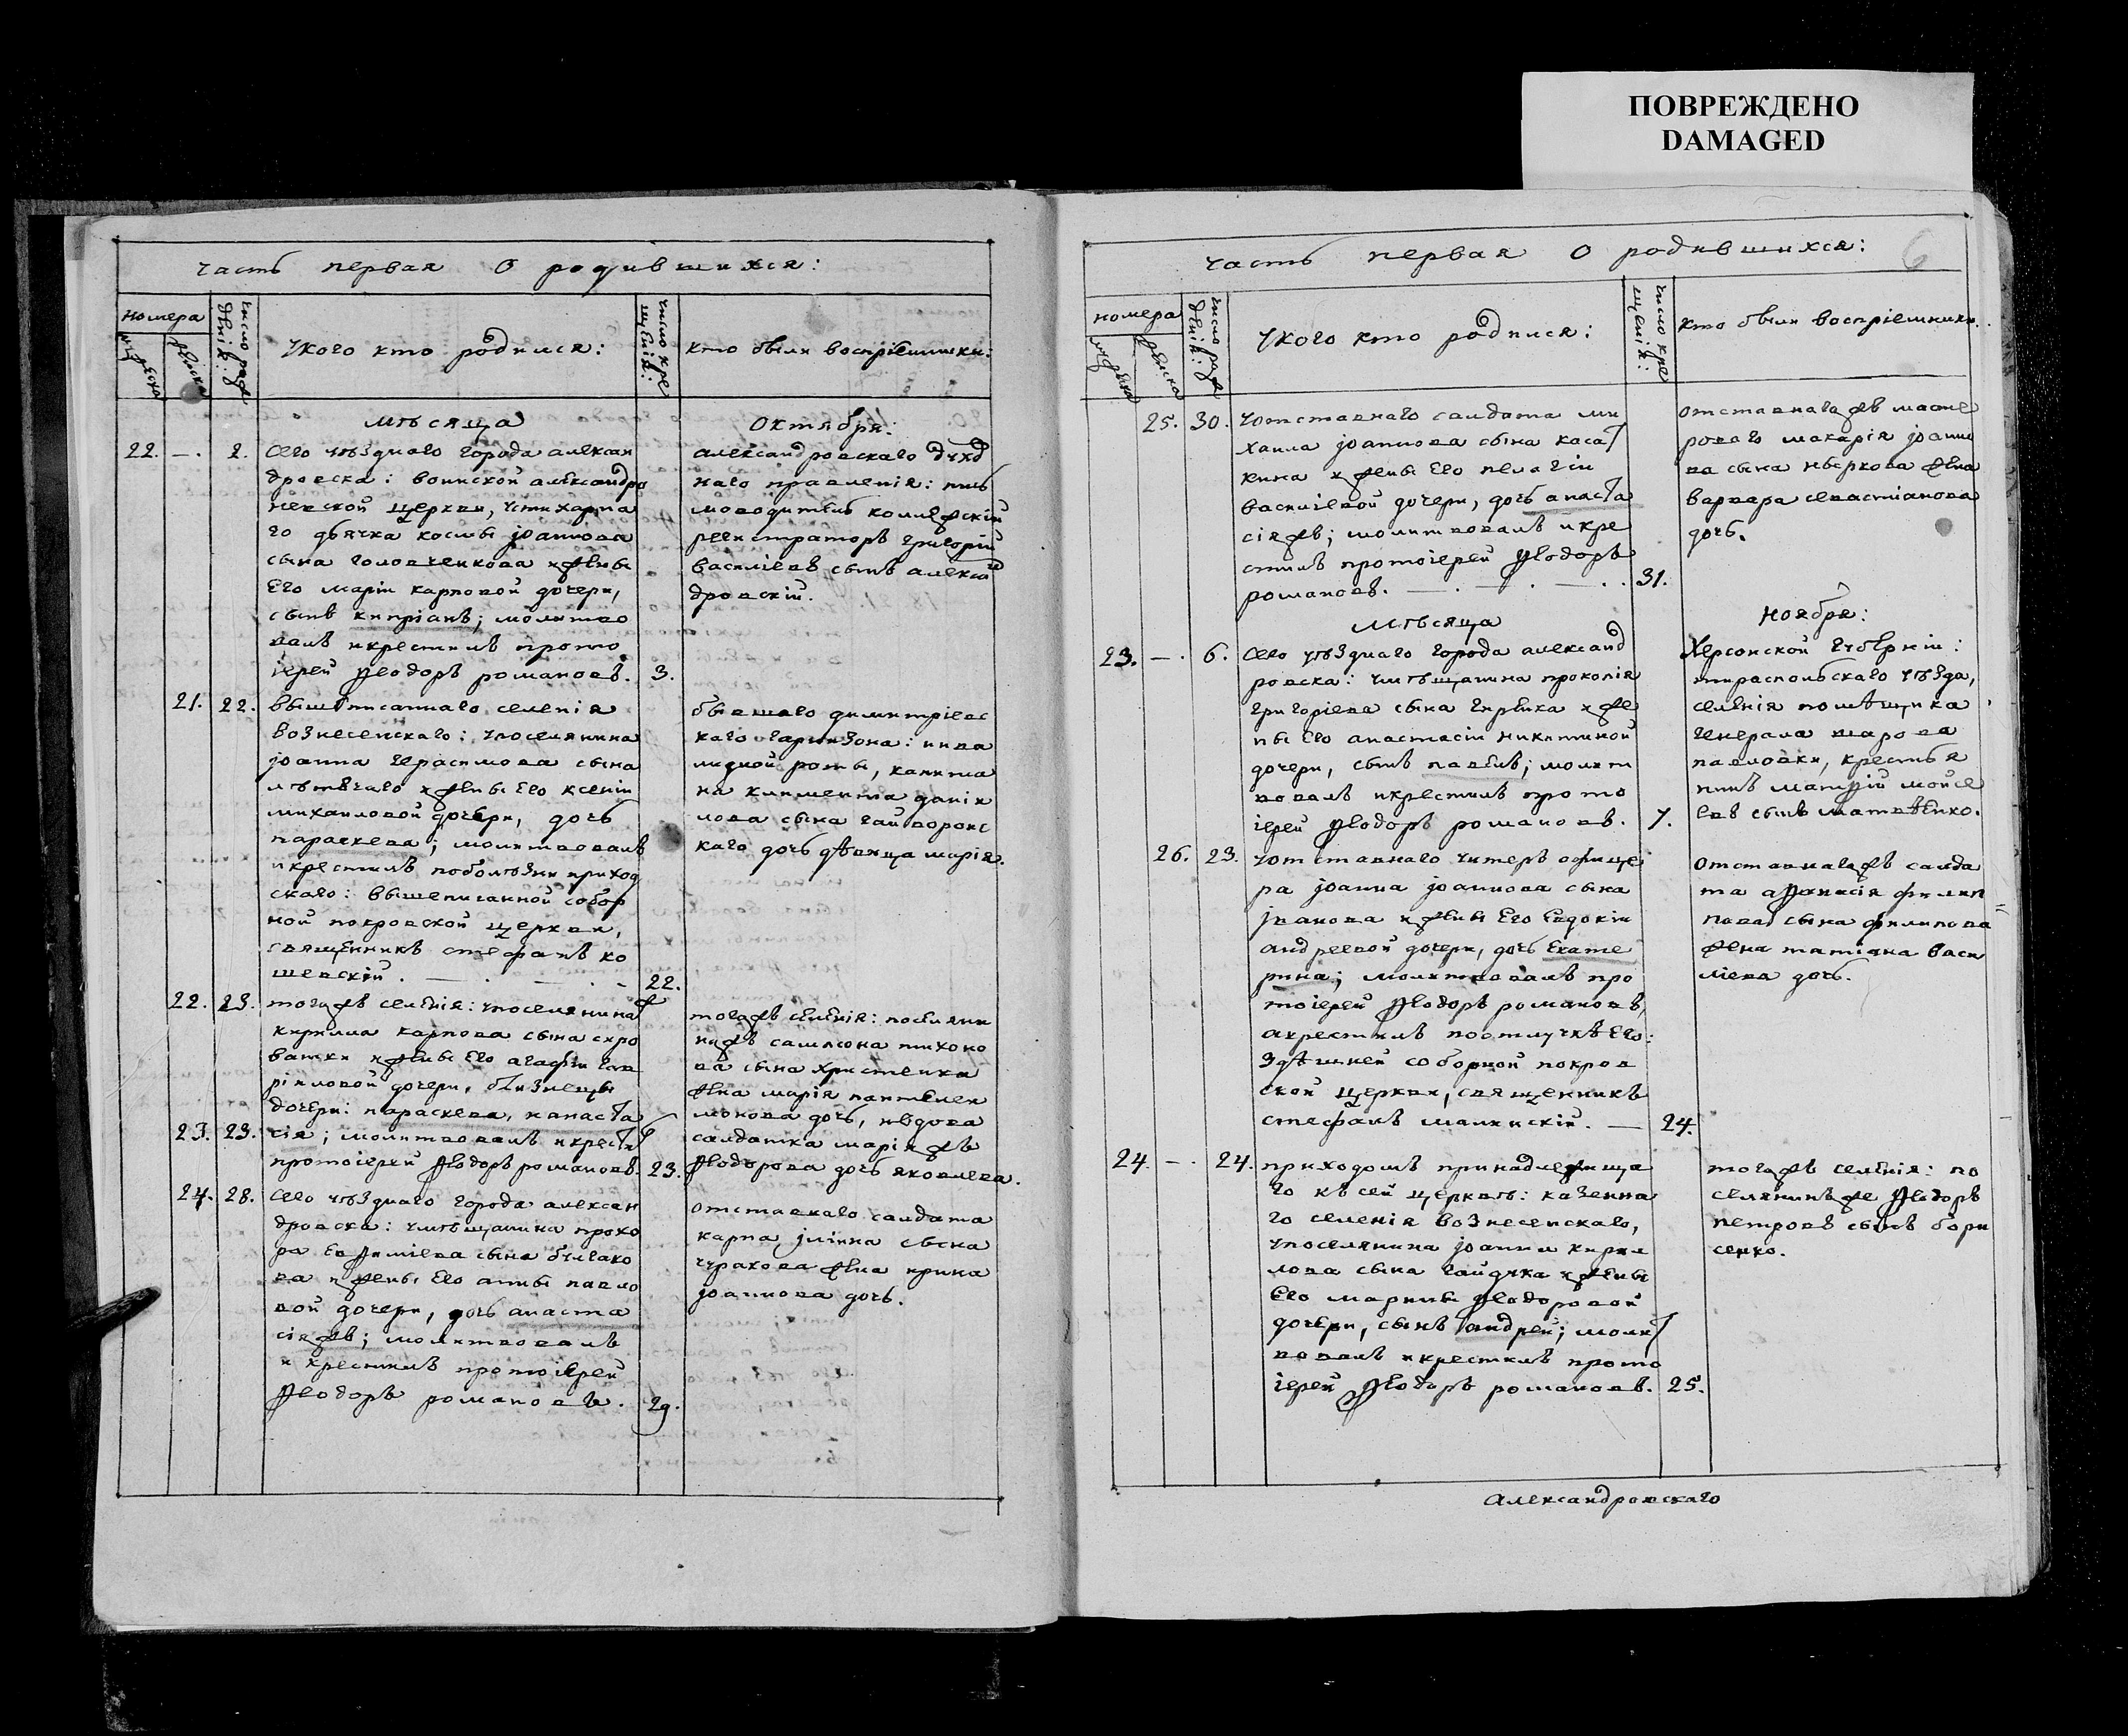 ПОВРЕЖДЕНО
DAMAGED
часть первая о родившихся:
номера
мужеска
женска
число рож
денія:
Укого кто родился:
число кре
щенія:
кто были воспріемники:
мѣсяца
октября:
22. —. 2. Сего уѣзднаго города алексан
дровска: воинской александро
невской церкви, устихарна
го дьячка космы јоаннова
сына головченкова ижены
Его маріи карповой дочери,
сынъ кипріанъ; молитво
валъ икрестилъ прото
іерей Ѳеодоръ романовъ. 3.
александровскаго духов
наго правленія: пись
моводитель коллежскій
регистраторъ григорій
василіевъ сынъ алексан
дровскій.
21. 22. вышеписаннаго селенія
вознесенскаго: упоселянина
јоанна герасимова сына
ижены Его ксеніи
михаиловой дочери, дочь
параскева; молитвовалъ
икрестилъ поболѣзни приход
скаго: вышеписанной собор
ной покровской церкви,
священникъ стефанъ ко
шевскій. 22.
бывшаго димитріевс
каго гарнизона: инва
лидной роты, капита
на климента даніи
лова сына гайворонс
каго дочь дѣвица марія.
22. 23. тогожъ селенія: упоселянина
кирилла карпова сына скро
ватки ижены Его агафіи гав
ріиловой дочери, близнецы
дочери: параскева, ианаста
23. 23. сія; молитвовалъ икрестил
протоіерей Ѳеодоръ романовъ. 23.
тогожъ селенія: поселяни
нажъ сампсона тихоно
ва сына христенка
жена марія пантелеи
монова дочь, ивдова
салдатка маріяжъ
Ѳеодорова дочь яковлева.
24. 28. Сего уѣзднаго города алексан
дровска: умѣщанина прохо
ра Евѳиміева сына булгако
ва ижены Его анны павло
вой дочери, дочь анаста
сіяжъ; молитвовалъ
и крестилъ протоіерей
Ѳеодоръ романовъ. 29.
отставнаго салдата
карпа јліина сына
чуракова жена ирина
јоаннова дочь.
часть первая о родившихся: 6
номера
мужеска
женска
число рож
денія:
Укого кто родился:
число кре
щенія:
кто были воспріемники.
25. 30. Уотставнаго салдата ми
хаила јоаннова сына касат
кина ижены Его пелагіи
василіевой дочери, дочь анаста
сіяжъ; молитвовалъ икре
стилъ протоіерей Ѳеодоръ
романовъ. 31.
отставнагожъ масте
роваго макарія јоанно
ва сына жена
варвара севастіанова
дочь.
мѣсяца
ноября:
23. —. 6. Сего уѣзднаго города александ
ровска: умѣщанина прокопія
григоріева сына ижe
ны Его анастасіи никитиной
дочери, сынъ павелъ; молит
вовалъ икрестилъ прото
іерей Ѳеодоръ романовъ. 7.
Херсонской губерніи:
тираспольскаго уѣзда,
селенія помѣщика
генерала шарова
павловки, крестья
нинъ матѳій мойсе
евъ сынъ матвѣенко.
26. 23. Уотставнаго унтеръ офице
ра јоанна јоаннова сына
јванова ижены Его Евдокіи
андреевой дочери, дочь Екате
рина; молитвовалъ про
тоіерей Ѳеодоръ романовъ,
акрестилъ поотлучкѣ Его:
здѣшней соборной покров
ской церкви, священникъ
стефанъ малинскій. — 24.
отставнагожъ салда
та аѳанасія филип
пова сына филипова
жена татіана васи
ліева дочь.
24. —. 24. приходомъ принадлежаща
го къ сей церквѣ: казенна
го селенія вознесенскаго,
упоселянина јоанна кирил
лова сына гайдука ижены
Его марины Ѳеодоровой
дочери, сынъ андрей; молит
вовалъ икрестилъ прото
іерей Ѳеодоръ романовъ. 25.
тогажъ селенія: по
селянинъже Ѳеодоръ
петровъ сынъ бори
сенко.
Александровскаго